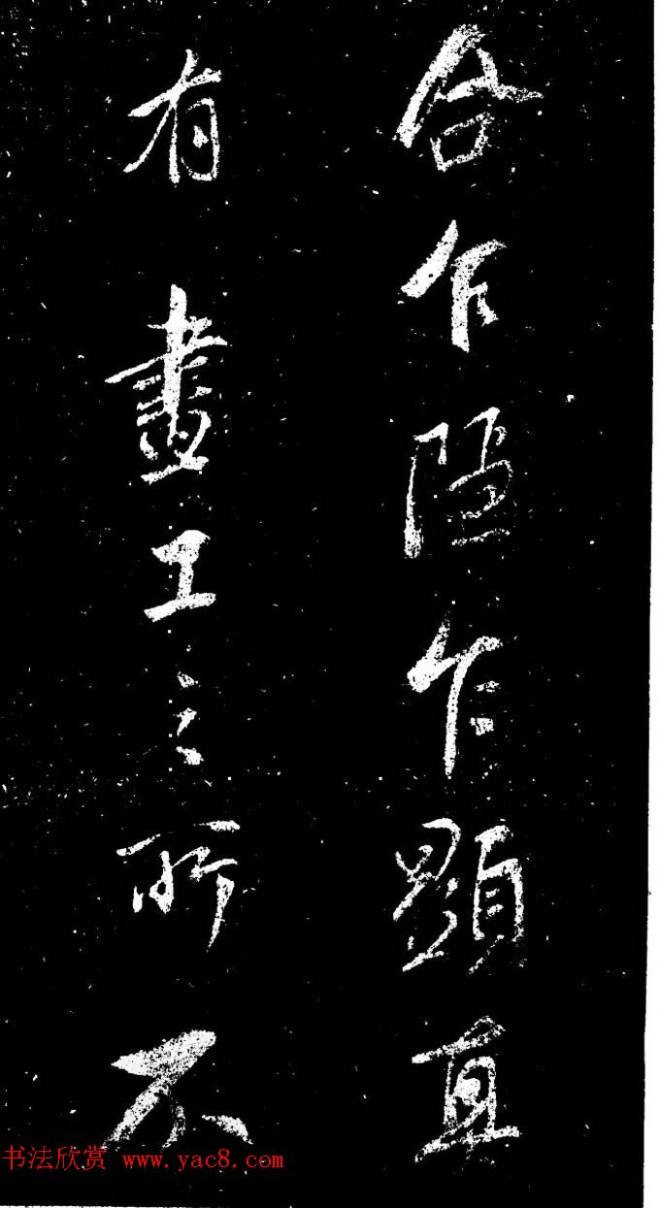 合乍隱乍顯真
有畫工之所不
书法欣赏 www.yac8.com